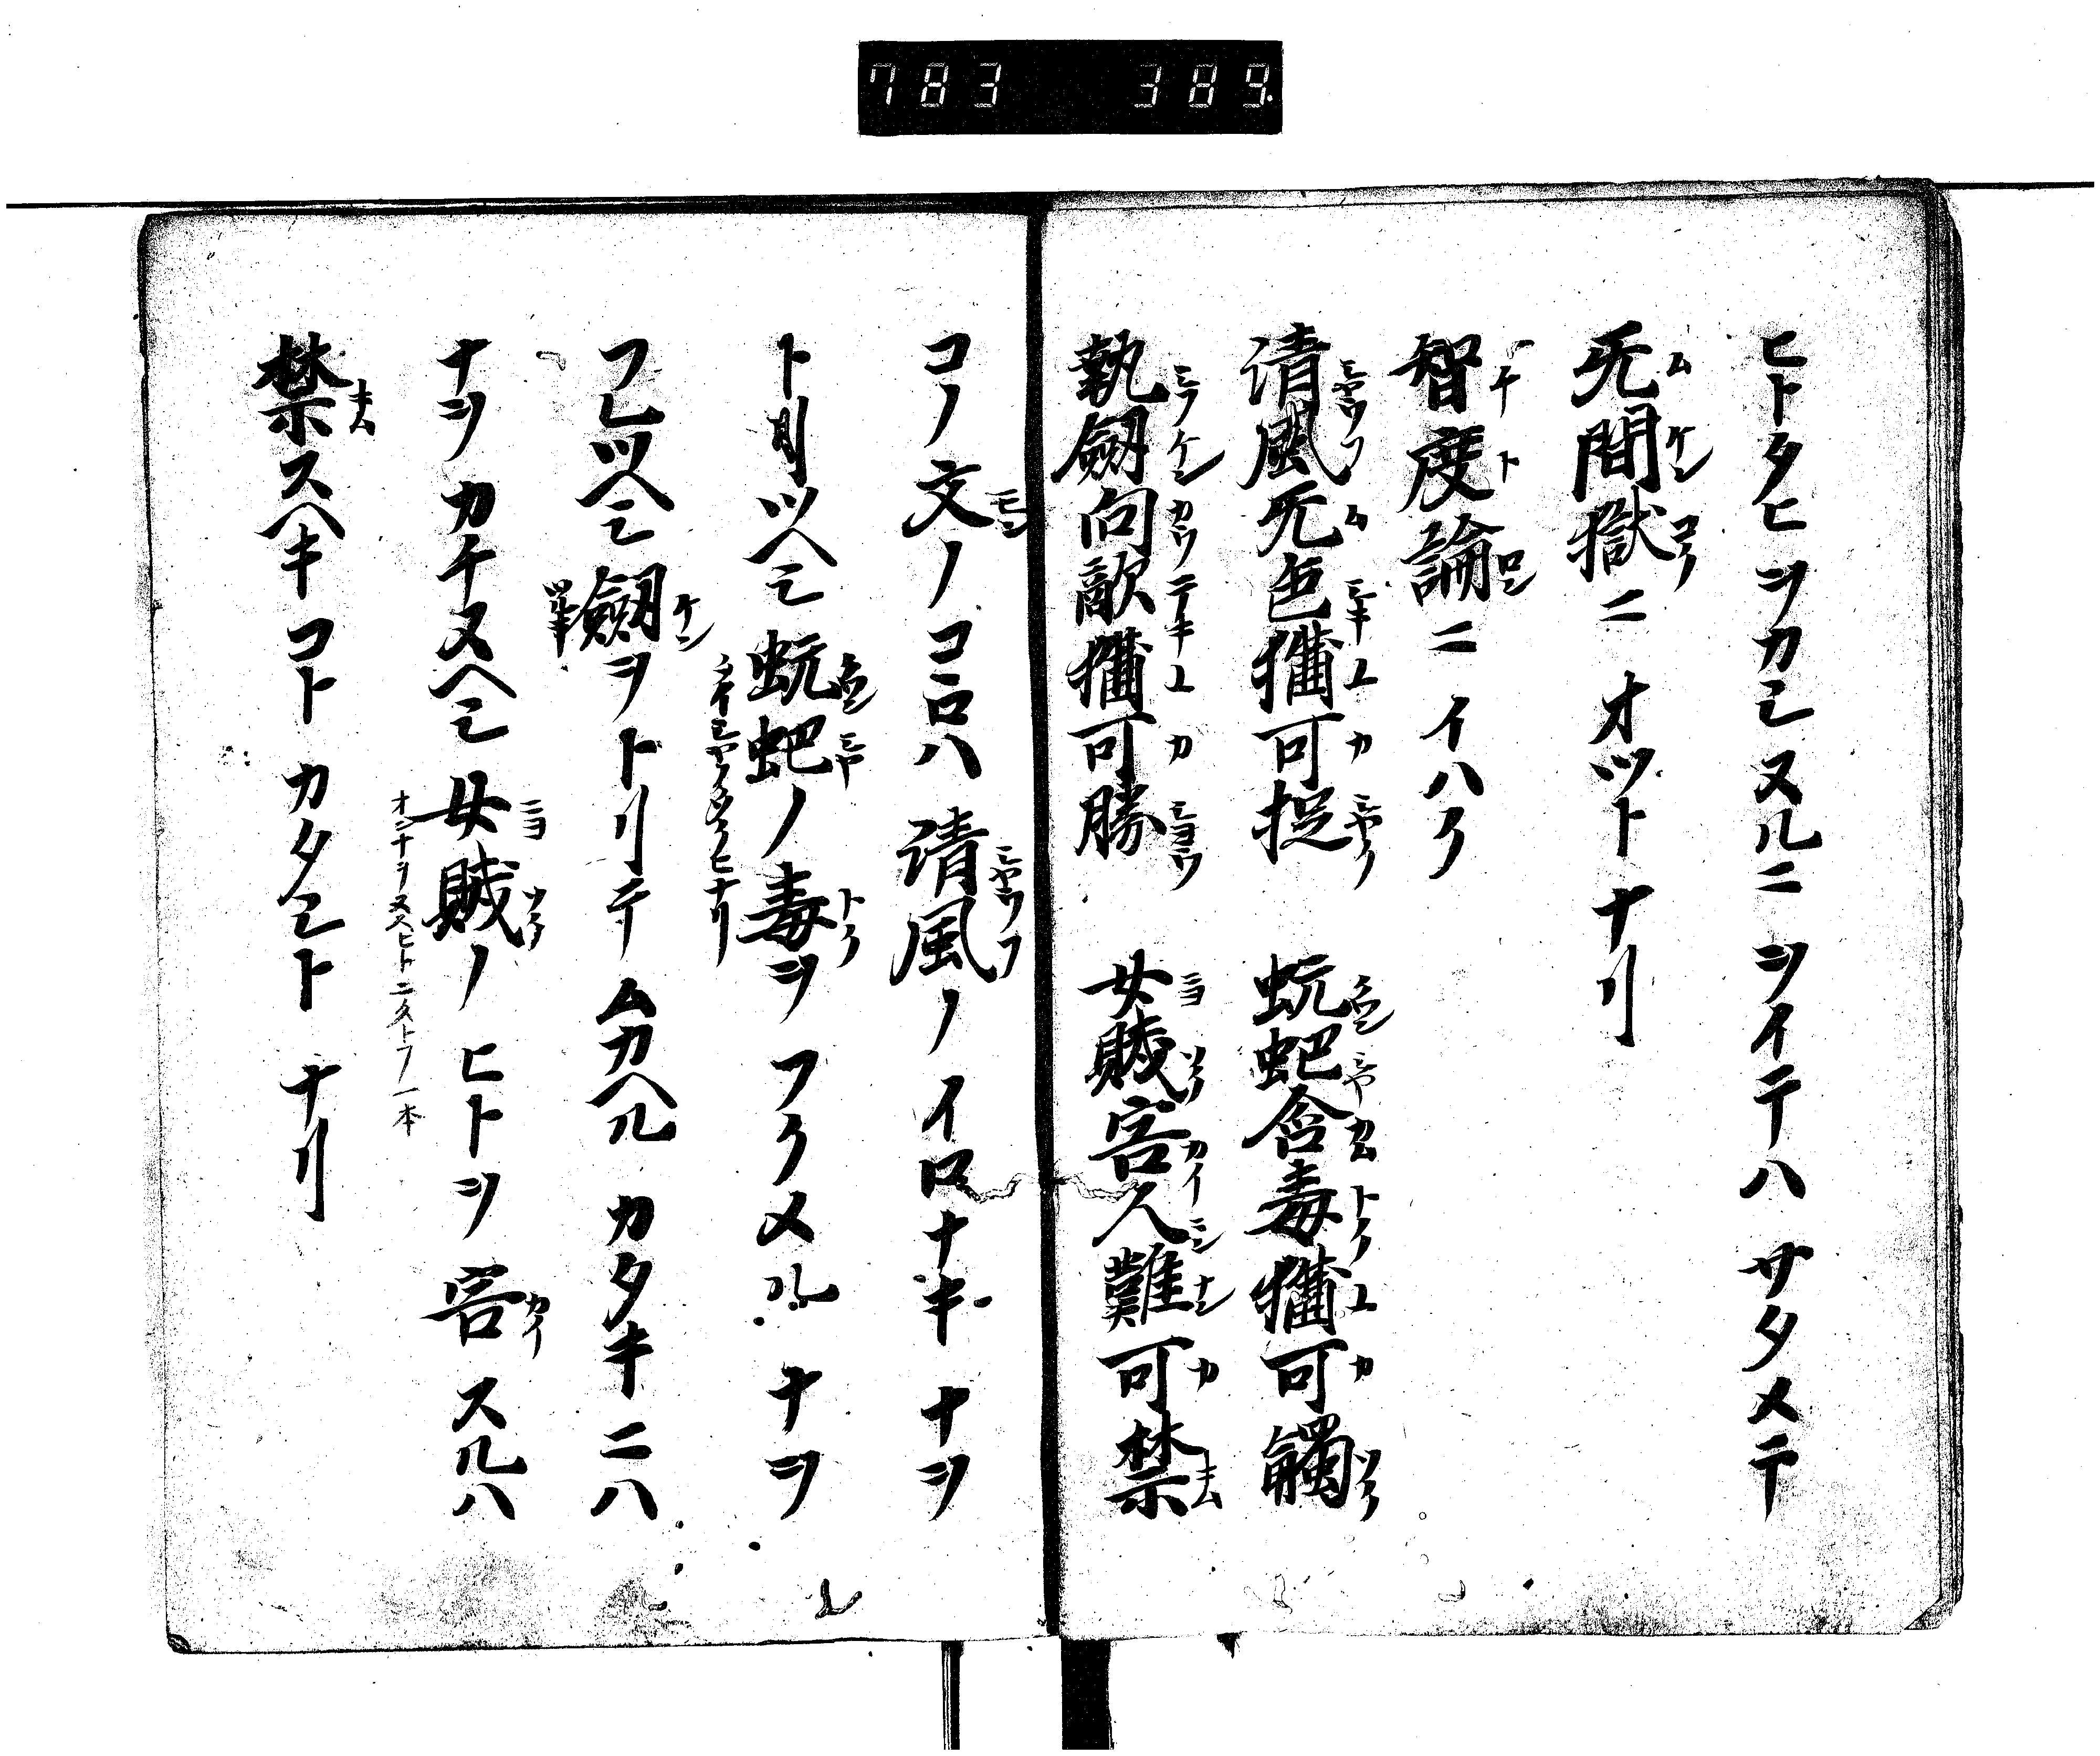 783 389
ヒトタヒヲカシヌルニヲイテハサタメテ
无間獄ニオツトナリ
智度論ニイハク
清風无色猶可捉 蚖虵含毒猶可觸
執劔向敵猶可勝 女賊害人難可禁
コノ文ノココロハ清風ノイロナキナヲ
トリツヘシ蚖虵ノ毒ヲフクメルナヲ
フレツヘシ劔ヲトリテムカヘルカタキニハ
ナヲカチヌヘシ女賊ノヒトヲ害スルハ
オンナヲヌスヒトニタトフ一本
禁スヘキコトカタシトナリ